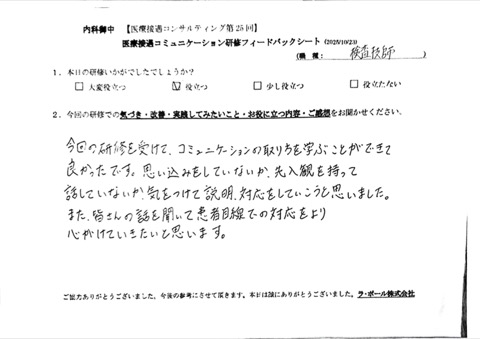 内科御中 【医療接遇コンサルティング第25回】
医療接遇コミュニケーション研修フィードバックシート (2025/10/23)
(職種: 検査技師 )
1．本日の研修いかがでしたでしょうか？
□ 大変役立つ ☑ 役立つ □ 少し役立つ □ 役立たない
2．今回の研修での気づき・改善・実践してみたいこと・お役に立つ内容・ご感想をお聞かせください。
今回の研修を受けて、コミュニケーションの取り方を学ぶことができて
良かったです。思い込みをしていないか、先入観を持って
話していないか、気をつけて説明、対応をしていこうと思いました。
また、皆さんの話を聞いて患者目線での対応をより
心がけていきたいと思います。
ご協力ありがとうございました。今後の参考にさせて頂きます。本日は誠にありがとうございました。ラ・ポール株式会社